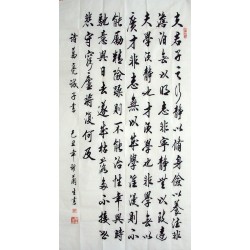 夫君子之行静以修身儉以養德非
澹泊無以明志非寧靜無以致遠
夫學須靜也才須學也非學無以
廣才非志無以成學慢則不
能勵精險躁則不能冶性年與時
馳意與日去遂成枯落多不接世
悲守窮廬將復何及
諸葛亮誡子書 己丑年 生書